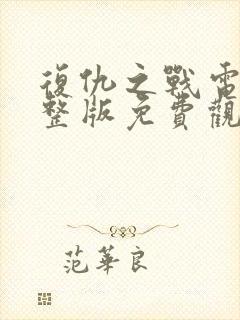 復仇之戰電
整版免費觀
范華良